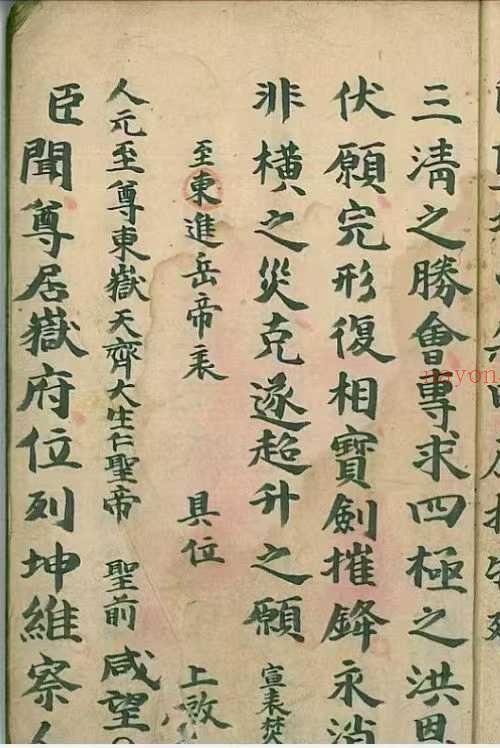 三清之勝會專求四極之洪恩
伏願完形復相寶劍摧鋒永消
非橫之災克遂超升之願 宣表焚
至東進岳帝表 具位 上啟
人元至尊東嶽天齊大生仁聖帝 聖前 咸望
臣聞尊居嶽府位列坤維察人
nayon